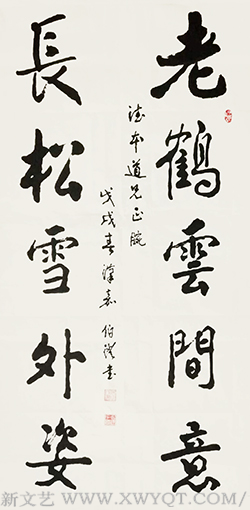 老鶴雲間意
長松雪外姿
本道兄正腕
戊戌春
書
新文艺 / WWW.XWYQT.COM/